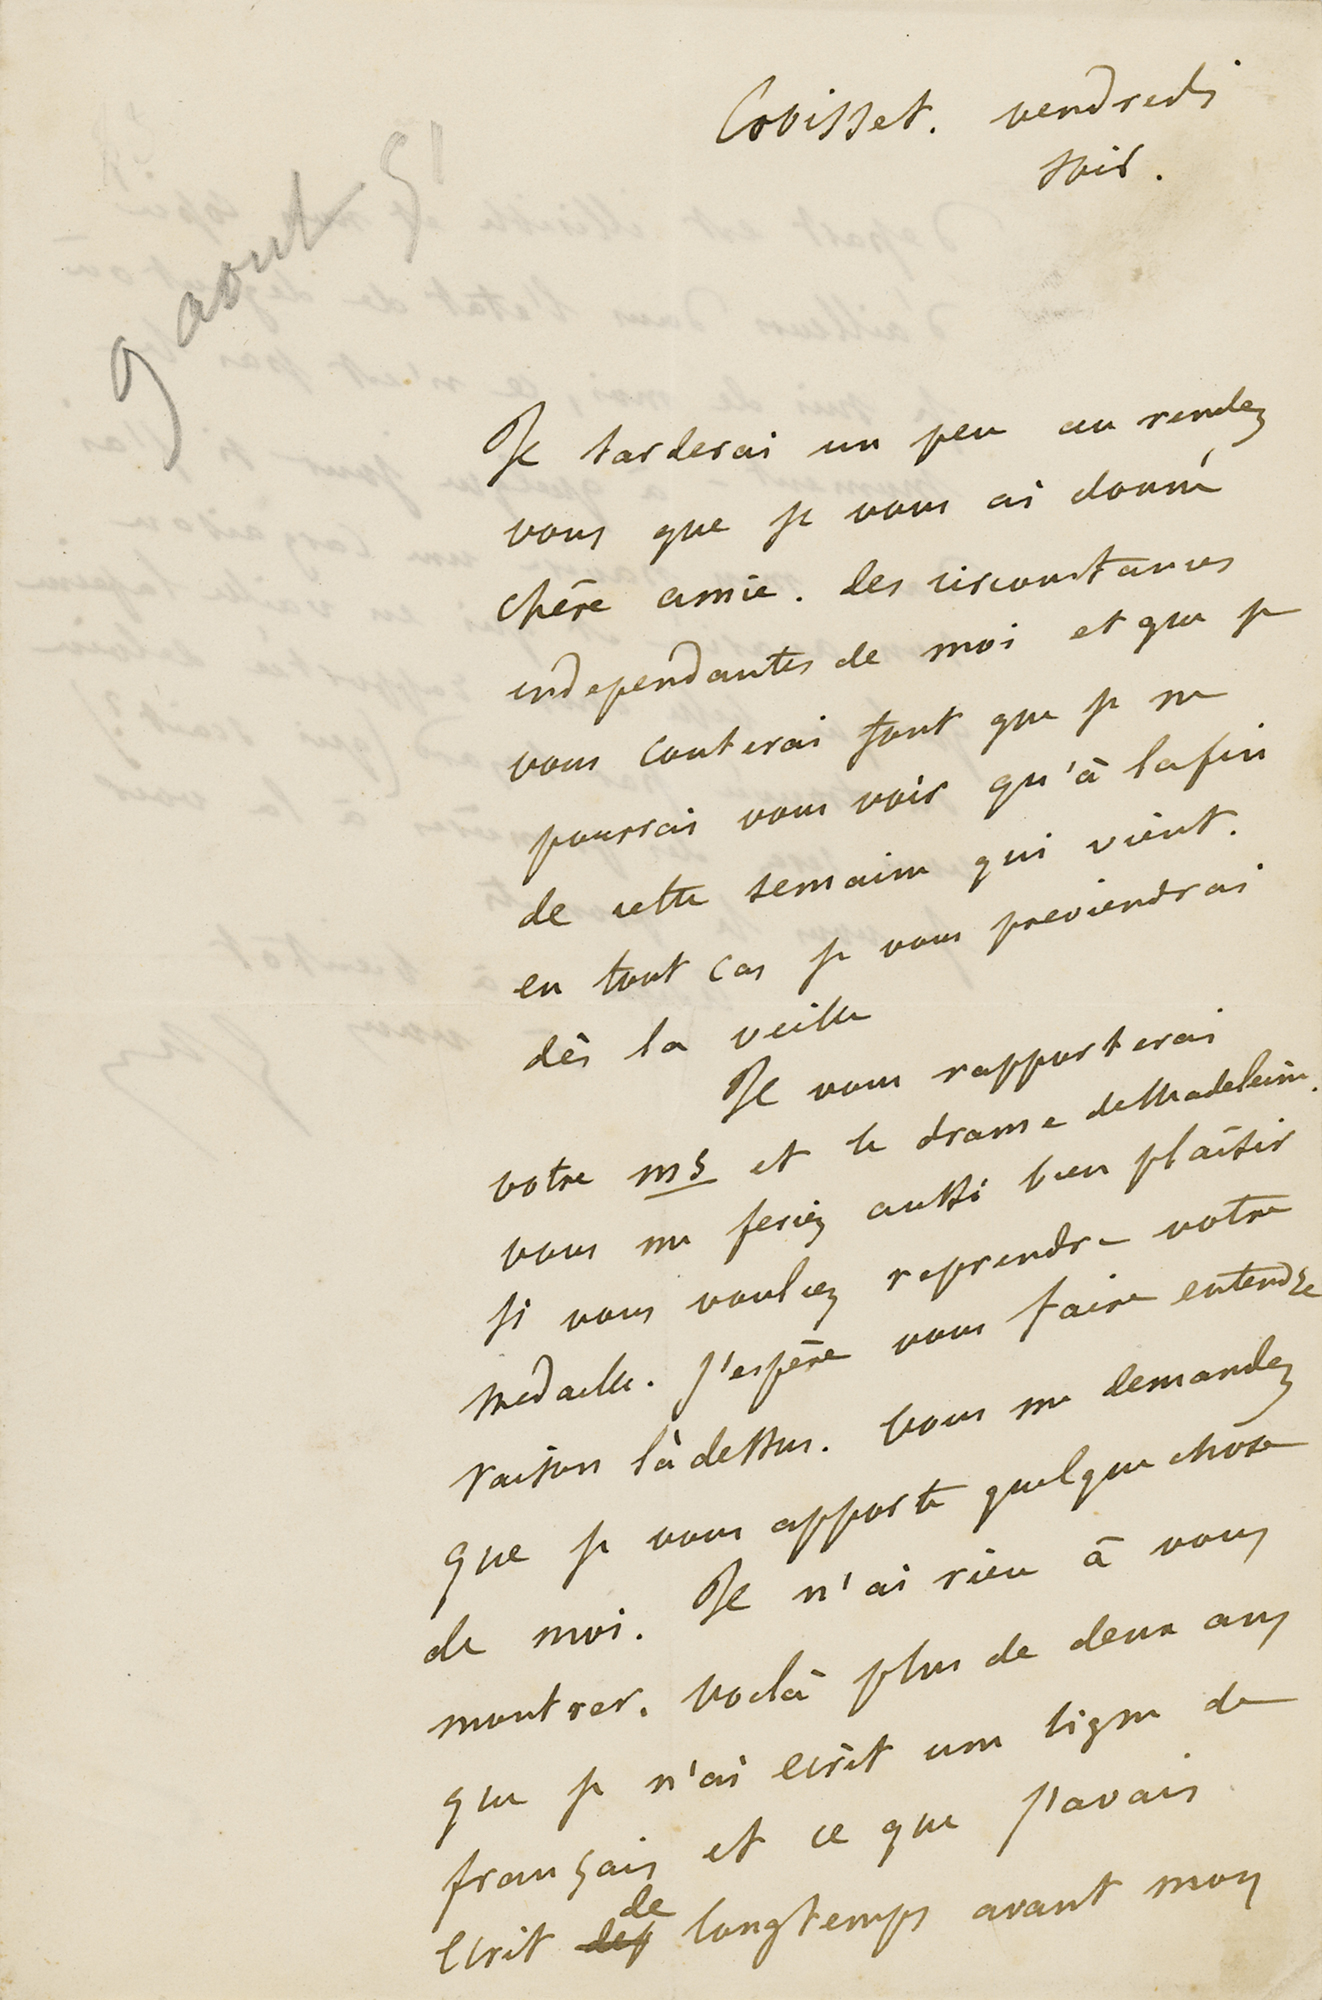 Croisset. vendredi
soir.
9 aout 51
Je tarderai un peu au rendez
vous que je vous ai donné
chère amie. des circonstances
independantes de moi et que je
vous conterai font que je ne
pourrai vous voir qu'à la fin
de cette semaine qui vient.
en tout cas je vous previendrai
dès la veille
Je vous rapporterai
votre ms et le drame de Madeleine.
vous me feriez aussi bien plaisir
si vous vouliez reprendre votre
medaille. J'espère vous faire entendre
raison là dessus. Vous me demandez
que je vous apporte quelque chose
de moi. Je n'ai rien à vous
montrer. Voilà plus de deux ans
que je n'ai écrit une ligne de
français et ce que j'avais
écrit de longtemps avant mon